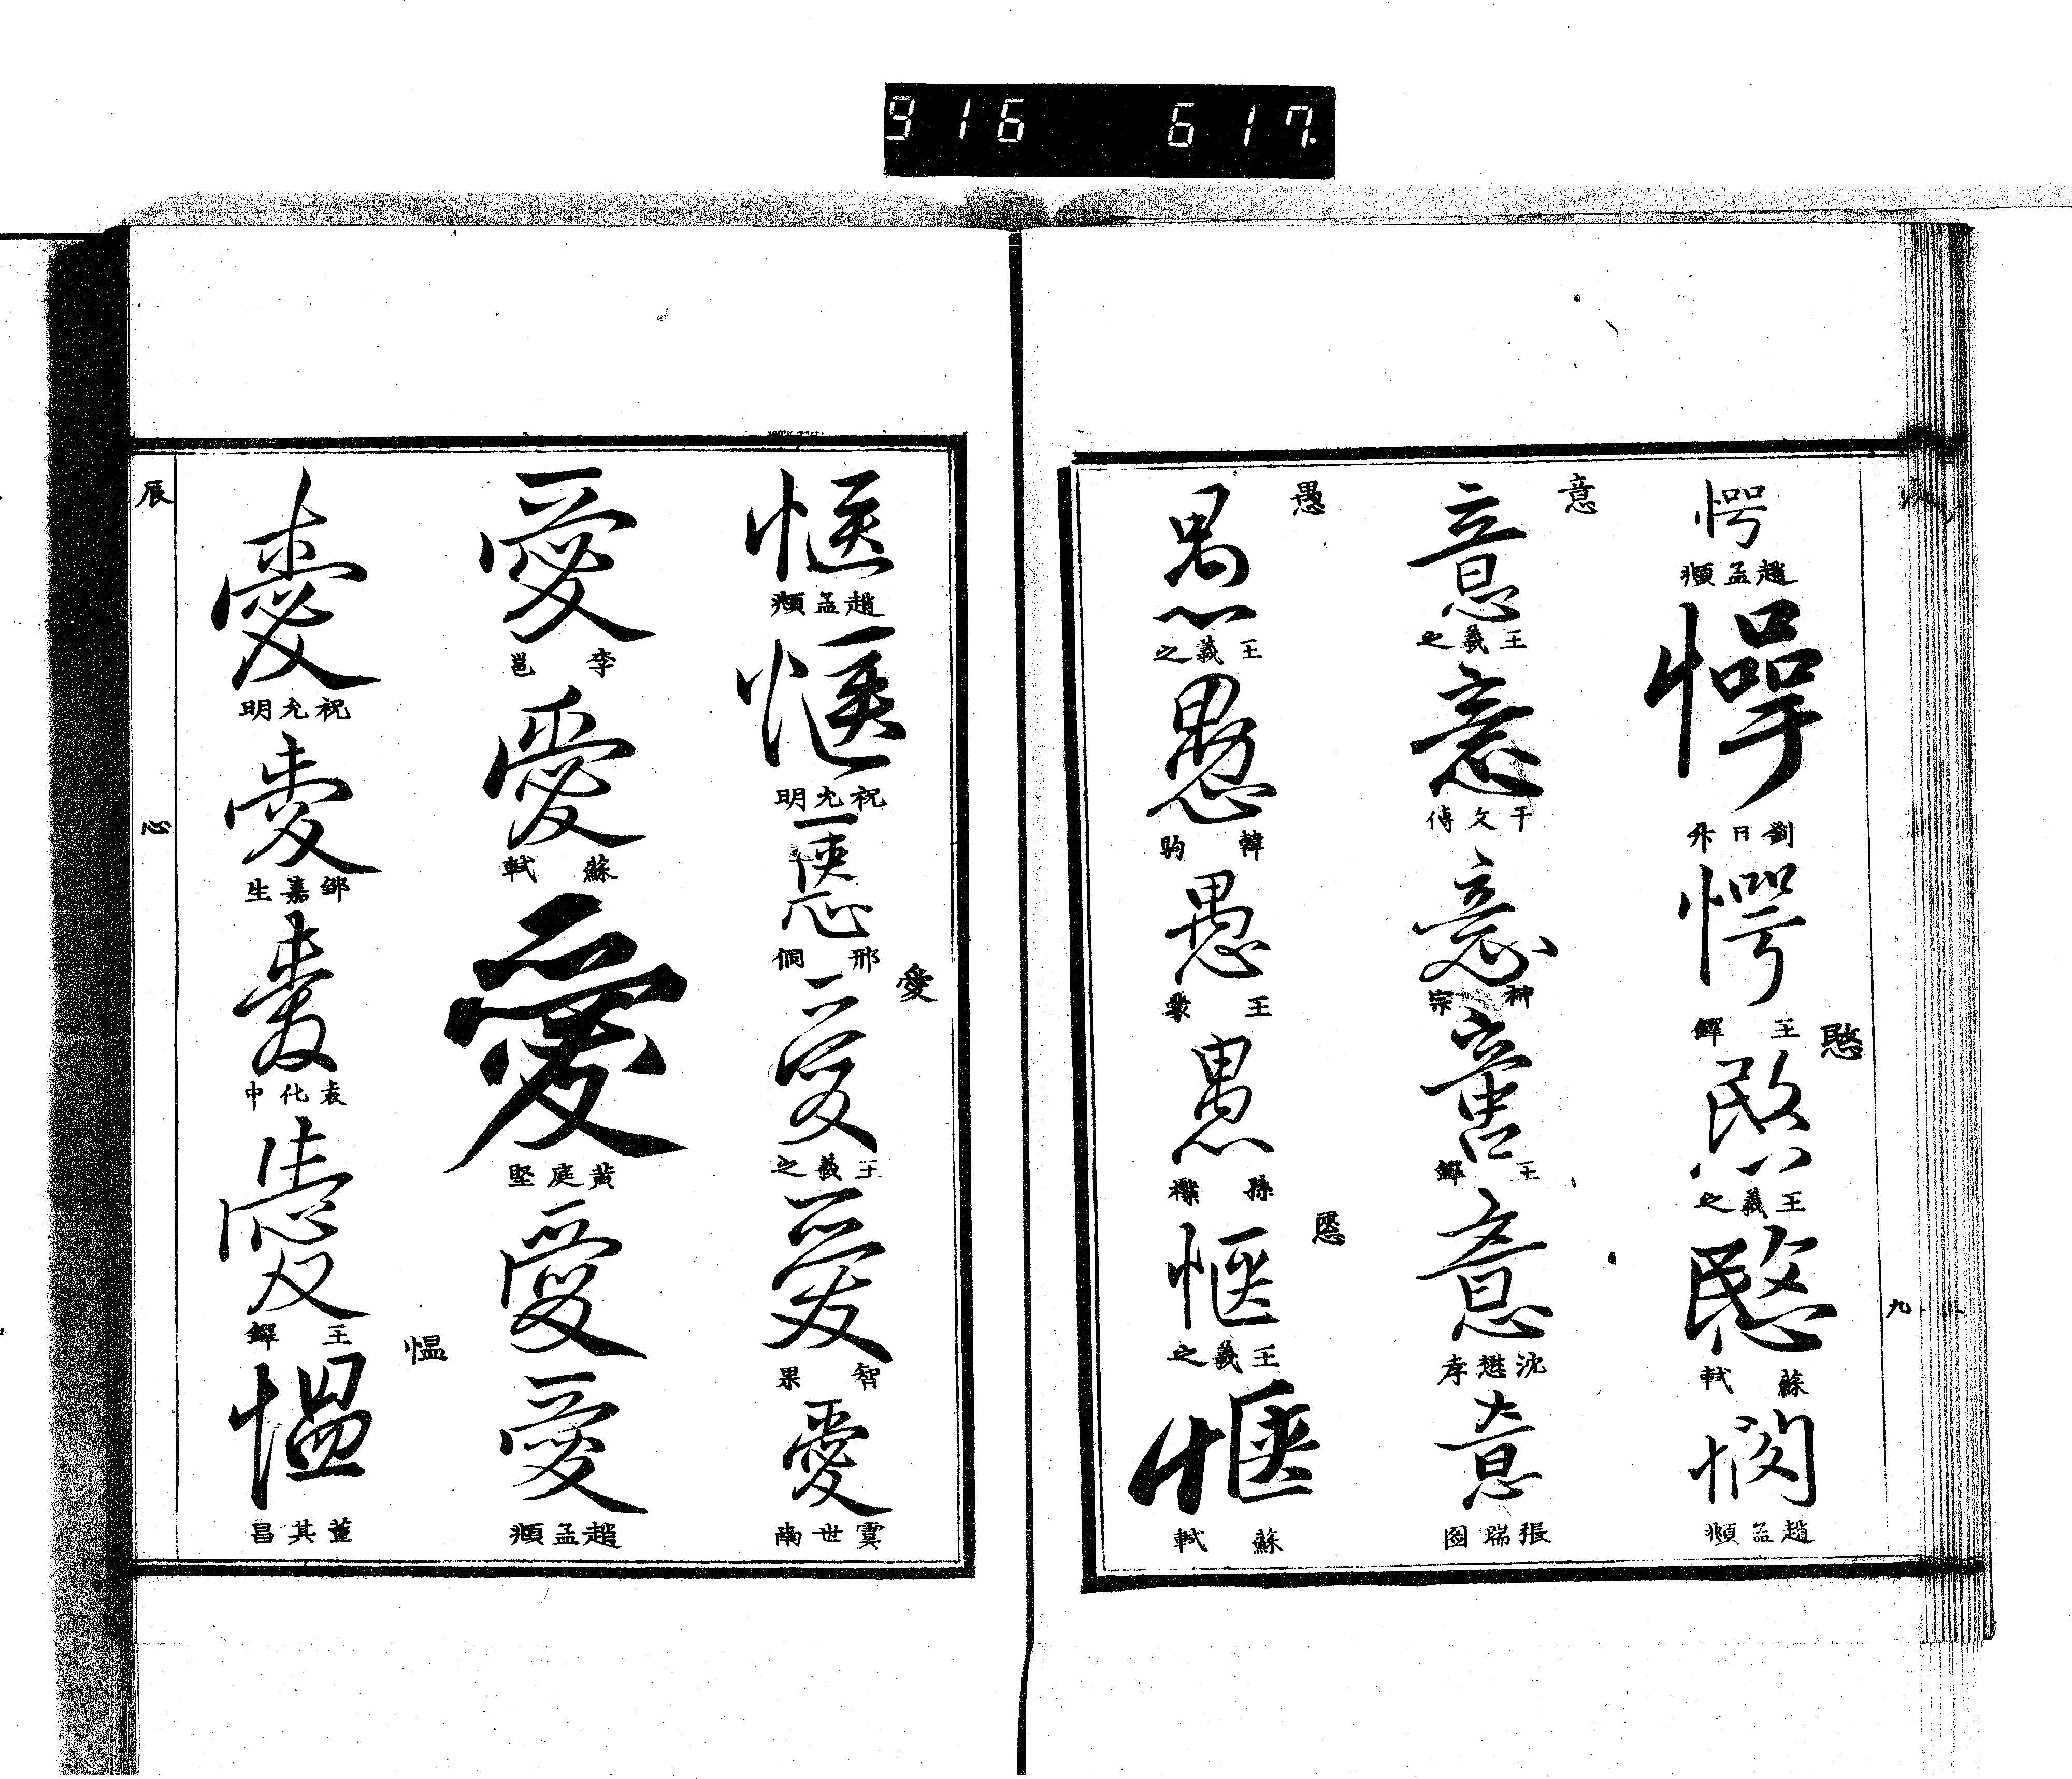 916 617.
九
愕
趙孟頫
愕
劉日升
愕
王鐸
愍
愍
王羲之
愍
蘇軾
憫
趙孟頫
意
意
王羲之
意
干文傳
意
神宗
意
王鐸
意
沈懋孝
意
張瑞圖
愚
愚
王羲之
愚
韓駒
愚
王蒙
愚
孫
愜
愜
王羲之
愜
蘇軾
愜
趙孟頫
愜
祝允明
愜
邢侗
愛
愛
王羲之
愛
智果
愛
虞世南
愛
李邕
愛
蘇軾
愛
黃庭堅
愛
愛
趙孟頫
愛
祝允明
愛
鄒嘉生
愛
袁化中
愛
王鐸
慍
慍
董其昌
辰
心